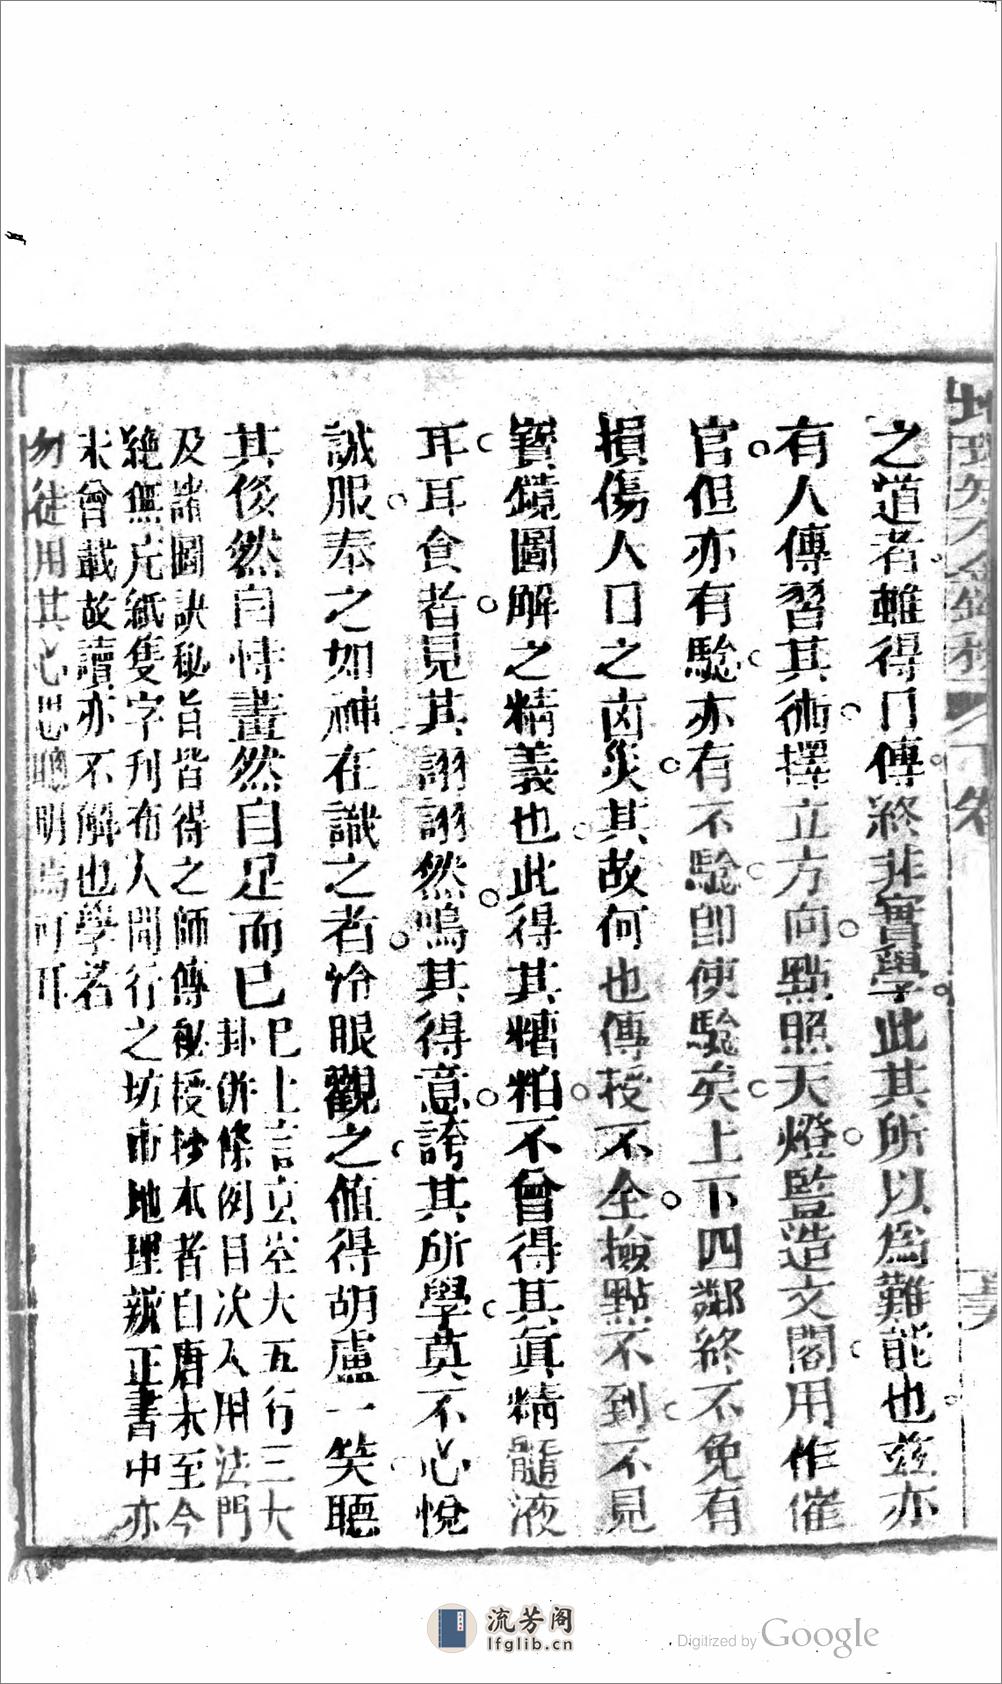 之道者雖得口傳終非實學此其所以爲難能也茲亦
有人傳習其術擇立方向點照天燈監造文閣用作催
官但亦有騐亦有不騐卽使騐矣上下四鄰終不免有
損傷人口之凶災其故何也傳授不全撿點不到不見
寶鏡圖解之精義也此得其糟粕不曾得其眞精髓液
耳耳食者見其詡詡然鳴其得意誇其所學莫不心悅
誠服奉之如神在識之者冷眼觀之値得胡盧一笑聽
其俊然自恃畫然自足而已
已上言立空大五行三大
卦併條例目次入用法門
及諸圖訣秘旨皆得之師傳秘授抄本者自唐末至今
絶無片紙隻字刊布人間行之坊市地理辨正書中亦
未曾載故讀亦不解也學者
勿徒用其心思聰明焉可耳
流芳阁
lfglib.cn
Digitized by Google